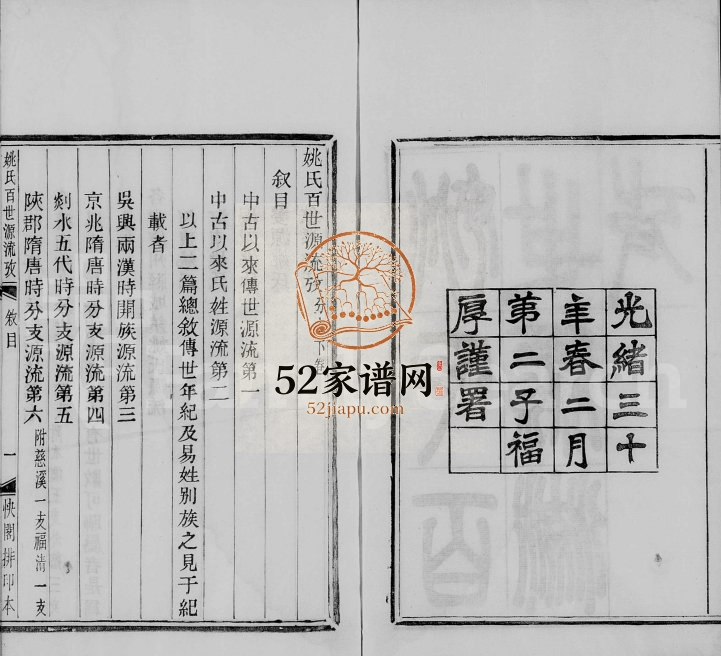 光緒三十
年春二月
第二子福
厚謹署
姚氏百世源流攷
下卷
叙目
中古以來傳世源流第一
中古以來氏姓源流第二
以上二篇總敘傳世年紀及易姓別族之見于紀
載者
吳興兩漢時開族源流第三
京兆隋唐時分支源流第四
剡水五代時分支源流第五
陝郡隋唐時分支源流第六 附慈溪一支福清一支
姚氏百世源流攷 敘目 一 快閣排印本
52家谱网
52jiapu.com